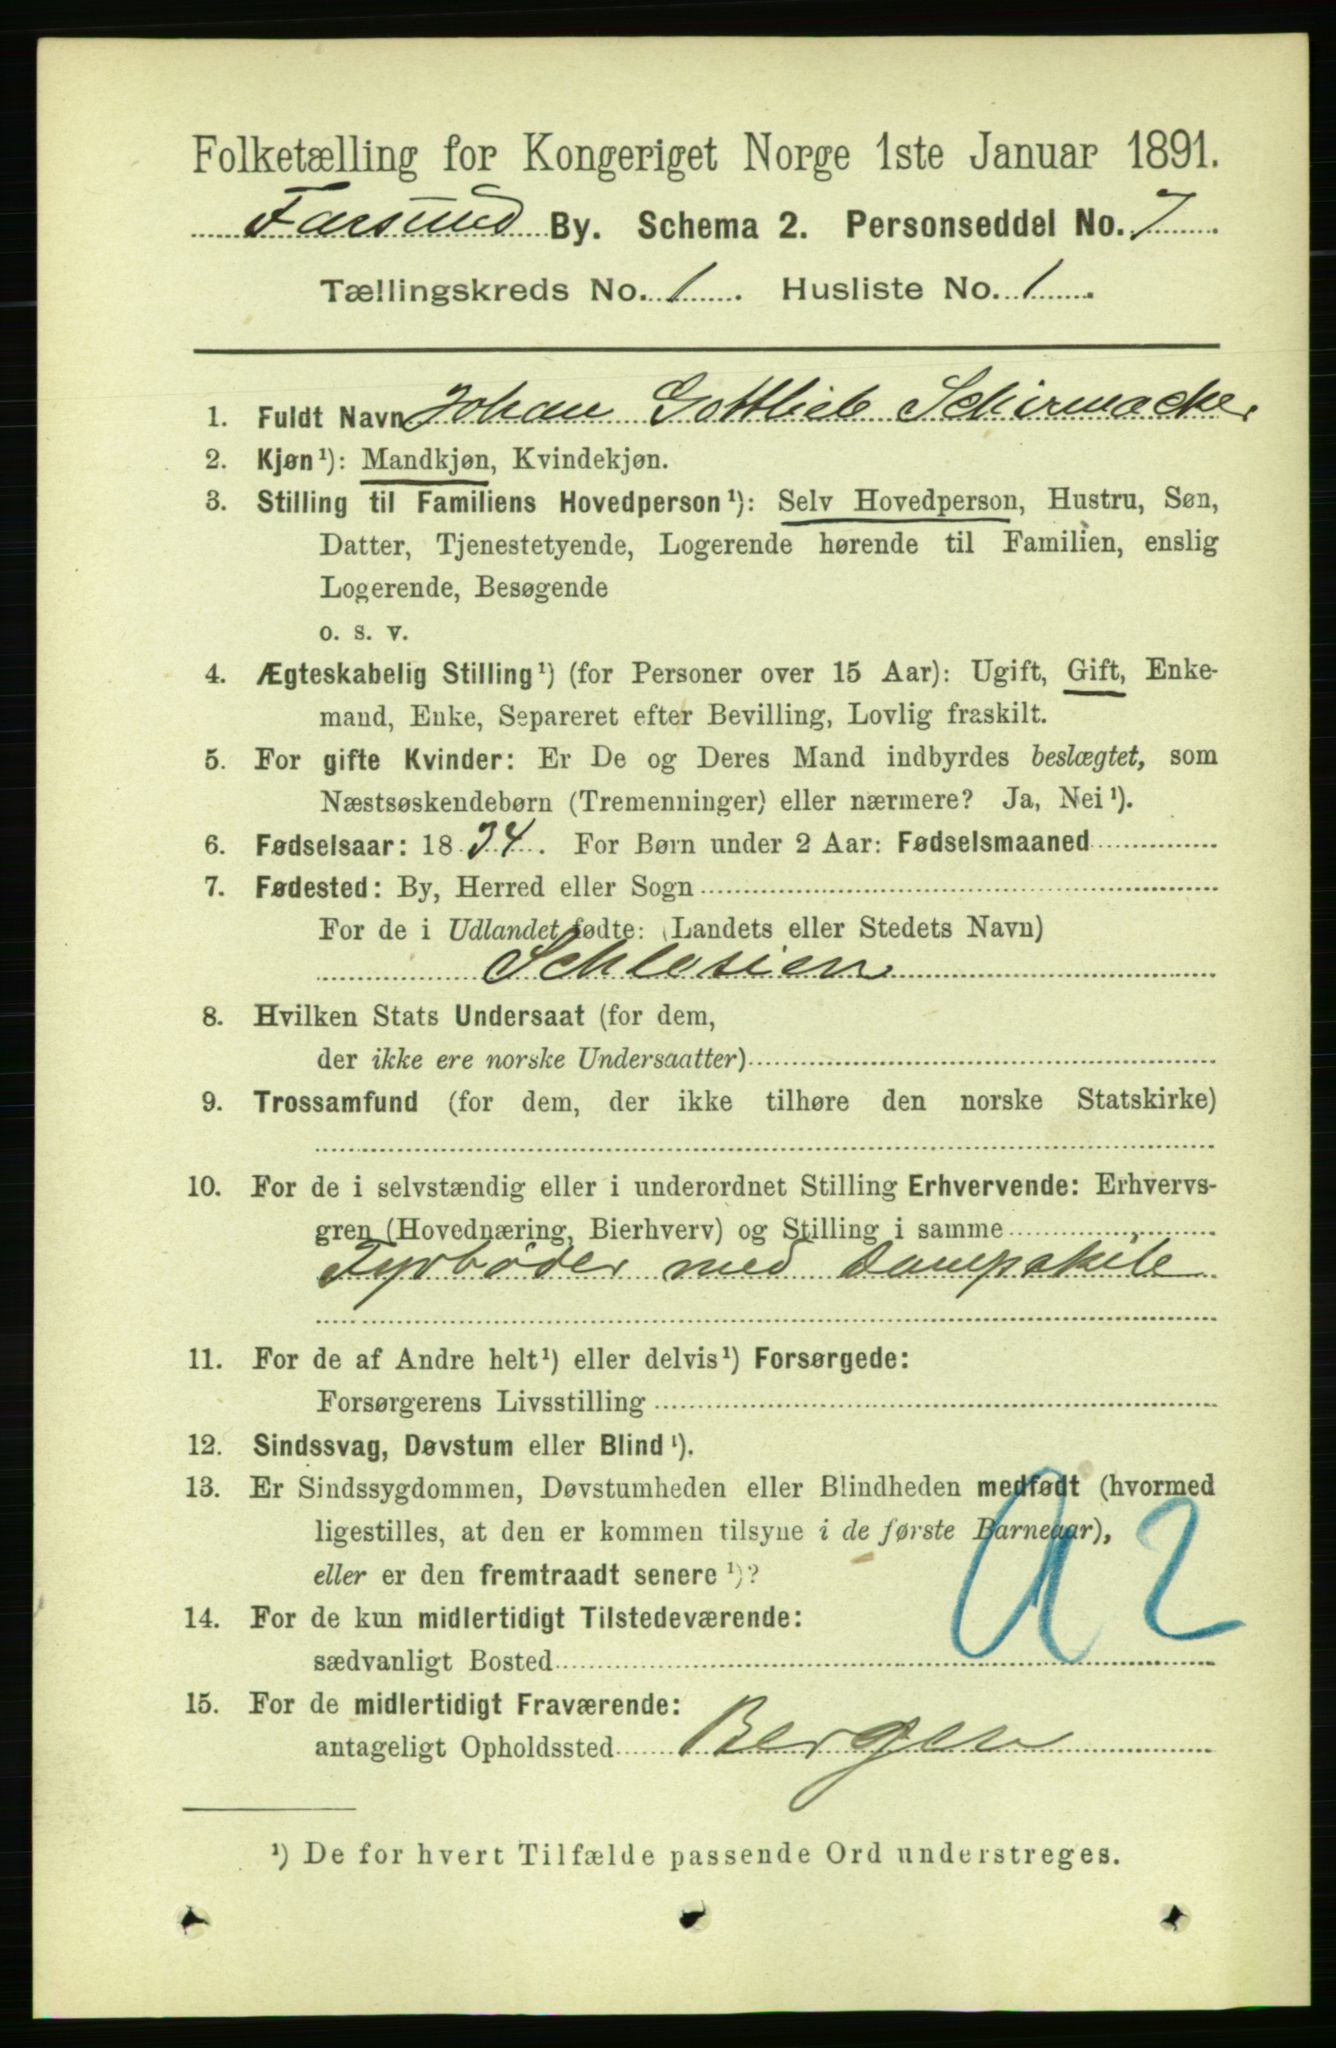 Folketælling for Kongeriget Norge 1ste Januar 1891.
Farsund By. Schema 2. Personseddel No. 7
Tællingskreds No. 1. Husliste No. 1.
1. Fuldt Navn Johan Gottlieb Schirmacker
2. Kjøn¹): Mandkjøn, Kvindekjøn.
3. Stilling til Familiens Hovedperson¹): Selv Hovedperson, Hustru, Søn,
Datter, Tjenestetyende, Logerende hørende til Familien, enslig
Logerende, Besøgende
o. s. v.
4. Ægteskabelig Stilling¹) (for Personer over 15 Aar): Ugift, Gift, Enke-
mand, Enke, Separeret efter Bevilling, Lovlig fraskilt.
5. For gifte Kvinder: Er De og Deres Mand indbyrdes beslægtet, som
Næstsøskendebørn (Tremenninger) eller nærmere? Ja, Nei¹).
6. Fødselsaar: 1834. For Børn under 2 Aar: Fødselsmaaned
7. Fødested: By, Herred eller Sogn
For de i Udlandet fødte: (Landets eller Stedets Navn)
Schlesien
8. Hvilken Stats Undersaat (for dem,
der ikke ere norske Undersaatter)
9. Trossamfund (for dem, der ikke tilhøre den norske Statskirke)
10. For de i selvstændig eller i underordnet Stilling Erhvervende: Erhvervs-
gren (Hovednæring, Bierhverv) og Stilling i samme
Fyrbøder med Dampskib
11. For de af Andre helt¹) eller delvis¹) Forsørgede:
Forsørgerens Livsstilling
12. Sindssvag, Døvstum eller Blind¹).
13. Er Sindssygdommen, Døvstumheden eller Blindheden medfødt (hvormed
ligestilles, at den er kommen tilsyne i de første Barneaar),
eller er den fremtraadt senere¹)?
14. For de kun midlertidigt Tilstedeværende:
sædvanligt Bosted
15. For de midlertidigt Fraværende:
antageligt Opholdssted Bergen
¹) De for hvert Tilfælde passende Ord understreges.